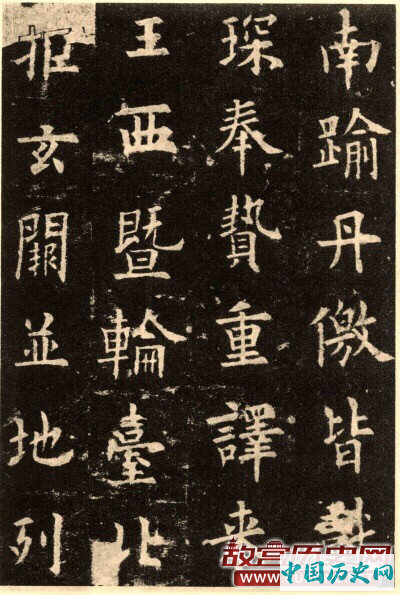 南踰丹徼皆獻
琛奉贄重譯来
王西暨輪臺北
拒玄闕並地列
故宫历史网
中国历史网